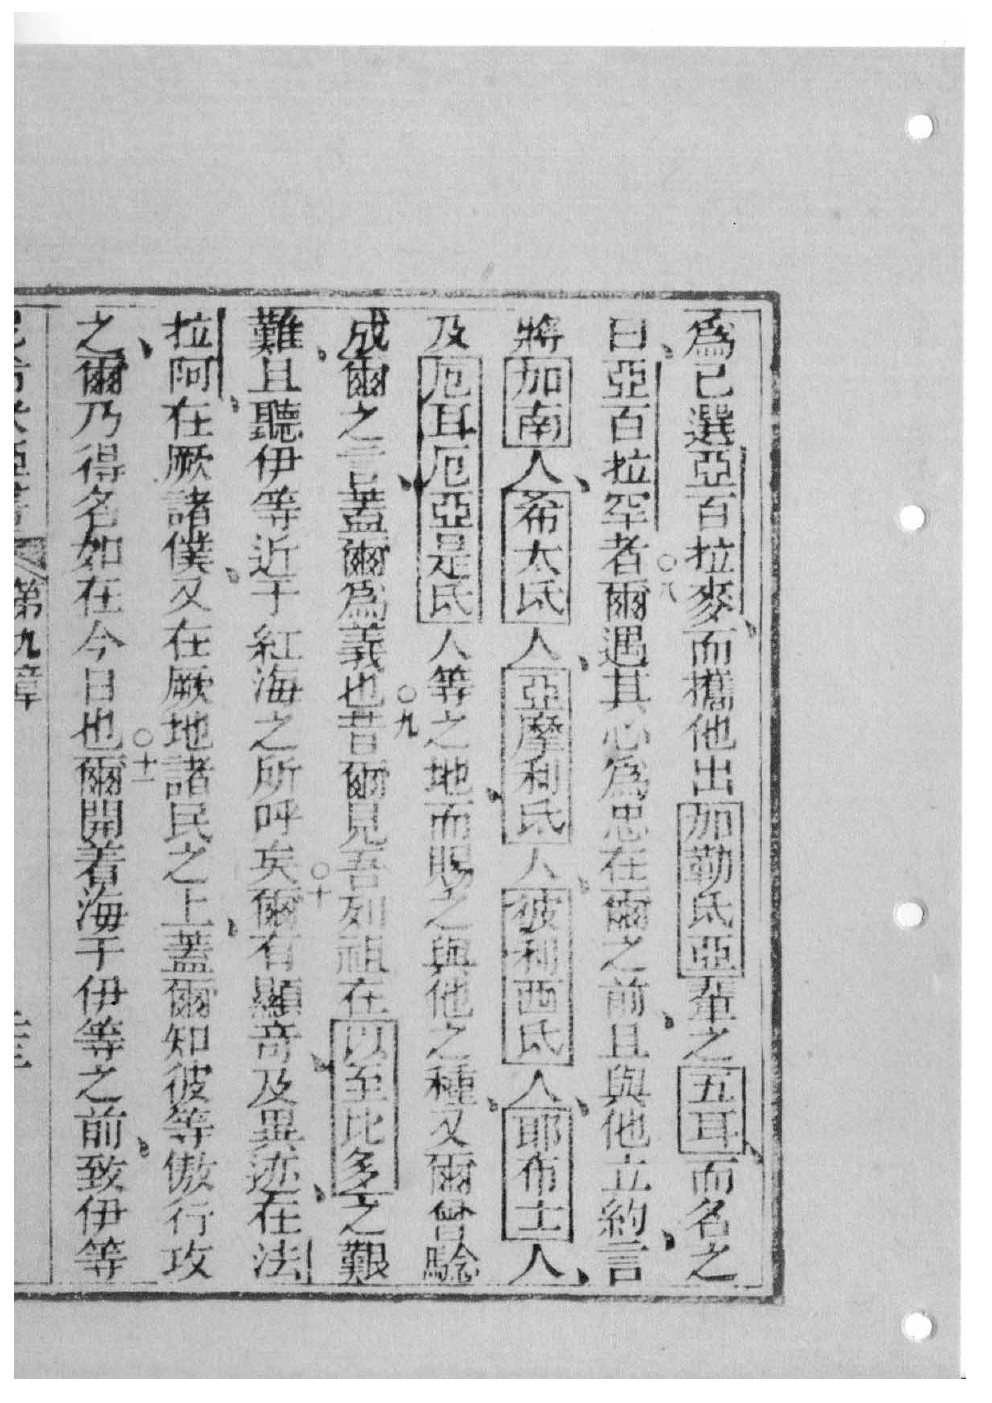 為己選亞百拉麥、而攜他出加勒氐亞輩之五耳、而名之
曰、亞百拉罕者○八爾遇其心為忠在爾之前、且與他立約、言
將加南人、希太氐人、亞摩利氐人、彼利西氐人、耶布士人、
及厄耳厄亞是氐人等之地、而賜之與他之種、又爾曾騐
成爾之言、蓋爾為義也○九昔爾見吾如祖在以至比多之艱
難、且聽伊等近于紅海之所呼矣○十爾有顯奇、及異迹、在法
拉阿、在厥諸僕、又在厥地諸民之上、蓋爾知彼等傲行攻
之、爾乃得名如在今日也○十一爾開着海于伊等之前、致伊等
第九章